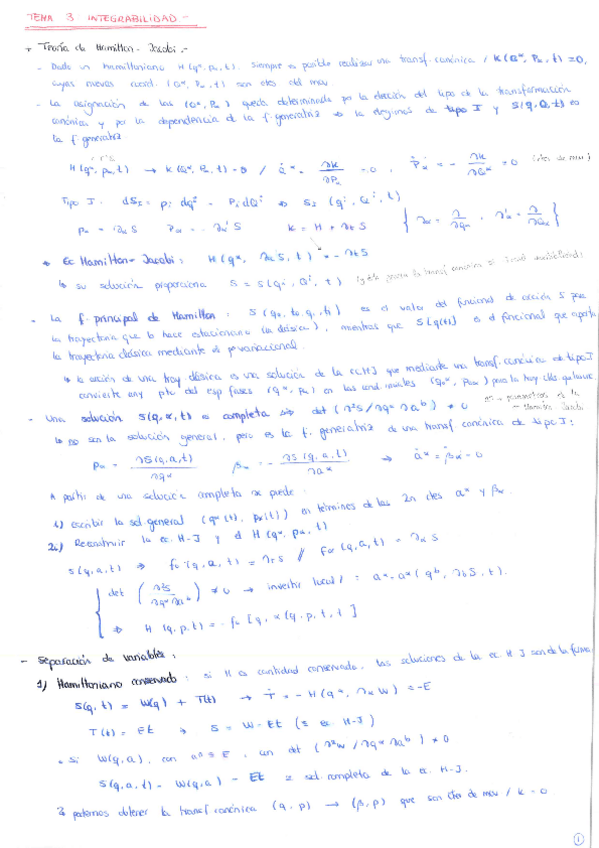 TEMA 3 INTEGRABILIDAD -
→ Teoría de Hamilton-Jacobi.-
- Dado un hamiltoniano H(qᵅ, pα, t). Siempre es posible realizar una transf. canónica / K(Qᵅ, Pα, t) = 0,
cuyas nuevas coord. (Qᵅ, Pα, t) son ctes del mov
- La asignación de las (Qᵅ, Pα) queda determinada por la elección del tipo de la transformación
canónica y por la dependencia de la f. generatriz ⇒ la elegimos de tipo I y S(q, Q, t) es
la f. generatriz
H(qᵅ, pα, t) → K(Qᵅ, Pα, t) = 0 / Q̇ᵅ = ∂K/∂Pα = 0, Ṗα = - ∂K/∂Qᵅ = 0 (ctes de mov)
Tipo I: dS₁ = pᵢ dqⁱ - Pᵢ dQⁱ ⇒ S₁ (qⁱ, Qⁱ, t)
pα = ∂α S Pα = - ∂'α S K = H + ∂t S { ∂α = ∂/∂qᵅ, ∂'α = ∂/∂Qᵅ }
* Ec Hamilton-Jacobi: H(qᵅ, ∂α S, t) = - ∂t S
↳ su solución proporciona S = S(qⁱ, Qⁱ, t)
- La f. principal de Hamilton: S(q₀, t₀, q, t) es el valor del funcional de acción S para
la trayectoria que lo hace estacionario (la clásica), mientras que S[q(t)] es el funcional que aporta
la trayectoria clásica mediante el pº variacional.
↳ la acción de una tray clásica es una solución de la ec. HJ que mediante una transf. canónica de tipo I
convierte any pto del esp fases (qᵅ, pα) en las cond. iniciales (q₀ᵅ, p₀α) para la tray clás. que
- Una solución S(q, α, t) es completa ⇔ det (∂²S/∂qᵅ ∂aᵇ) ≠ 0
↳ no son la solución general, pero es la f. generatriz de una transf canónica de tipo I:
pα = ∂S(q, a, t)/∂qᵅ βα = - ∂S(q, a, t)/∂aᵅ ⇒ ȧᵅ = β̇α = 0
A partir de una solución completa se puede:
1) escribir la sol. general (qᵅ(t), pα(t)) en términos de las 2n ctes aᵅ y βα
2) Reconstruir la ec. H-J y el H(qᵅ, pα, t)
S(q, a, t) ⇒ f₀(q, a, t) = ∂t S // fα(q, a, t) = ∂α S
det (∂²S/∂qᵅ ∂aᵇ) ≠ 0 ⇒ invertir local / aᵅ = aᵅ(qᵇ, ∂b S, t).
⇒ H(q, p, t) = - f₀ [q, α(q, p, t), t]
- Separación de variables:
1) Hamiltoniano conservado: si H es cantidad conservada. Las soluciones de la ec. H J son de la forma
S(q, t) = W(q) + T(t) → Ṫ = - H(qᵅ, ∂α W) = -E
T(t) = Et ⇒ S = W - Et (≤ ec H-J)
• Si W(q, a), con aⁿ ≡ E, un det (∂²W/∂qᵅ ∂aᵇ) ≠ 0
S(q, a, t) = W(q, a) - Et ≡ sol. completa de la ec. H-J.
podemos obtener la transf canónica (q, p) → (β, p) que son ctes de mov / K = 0
1